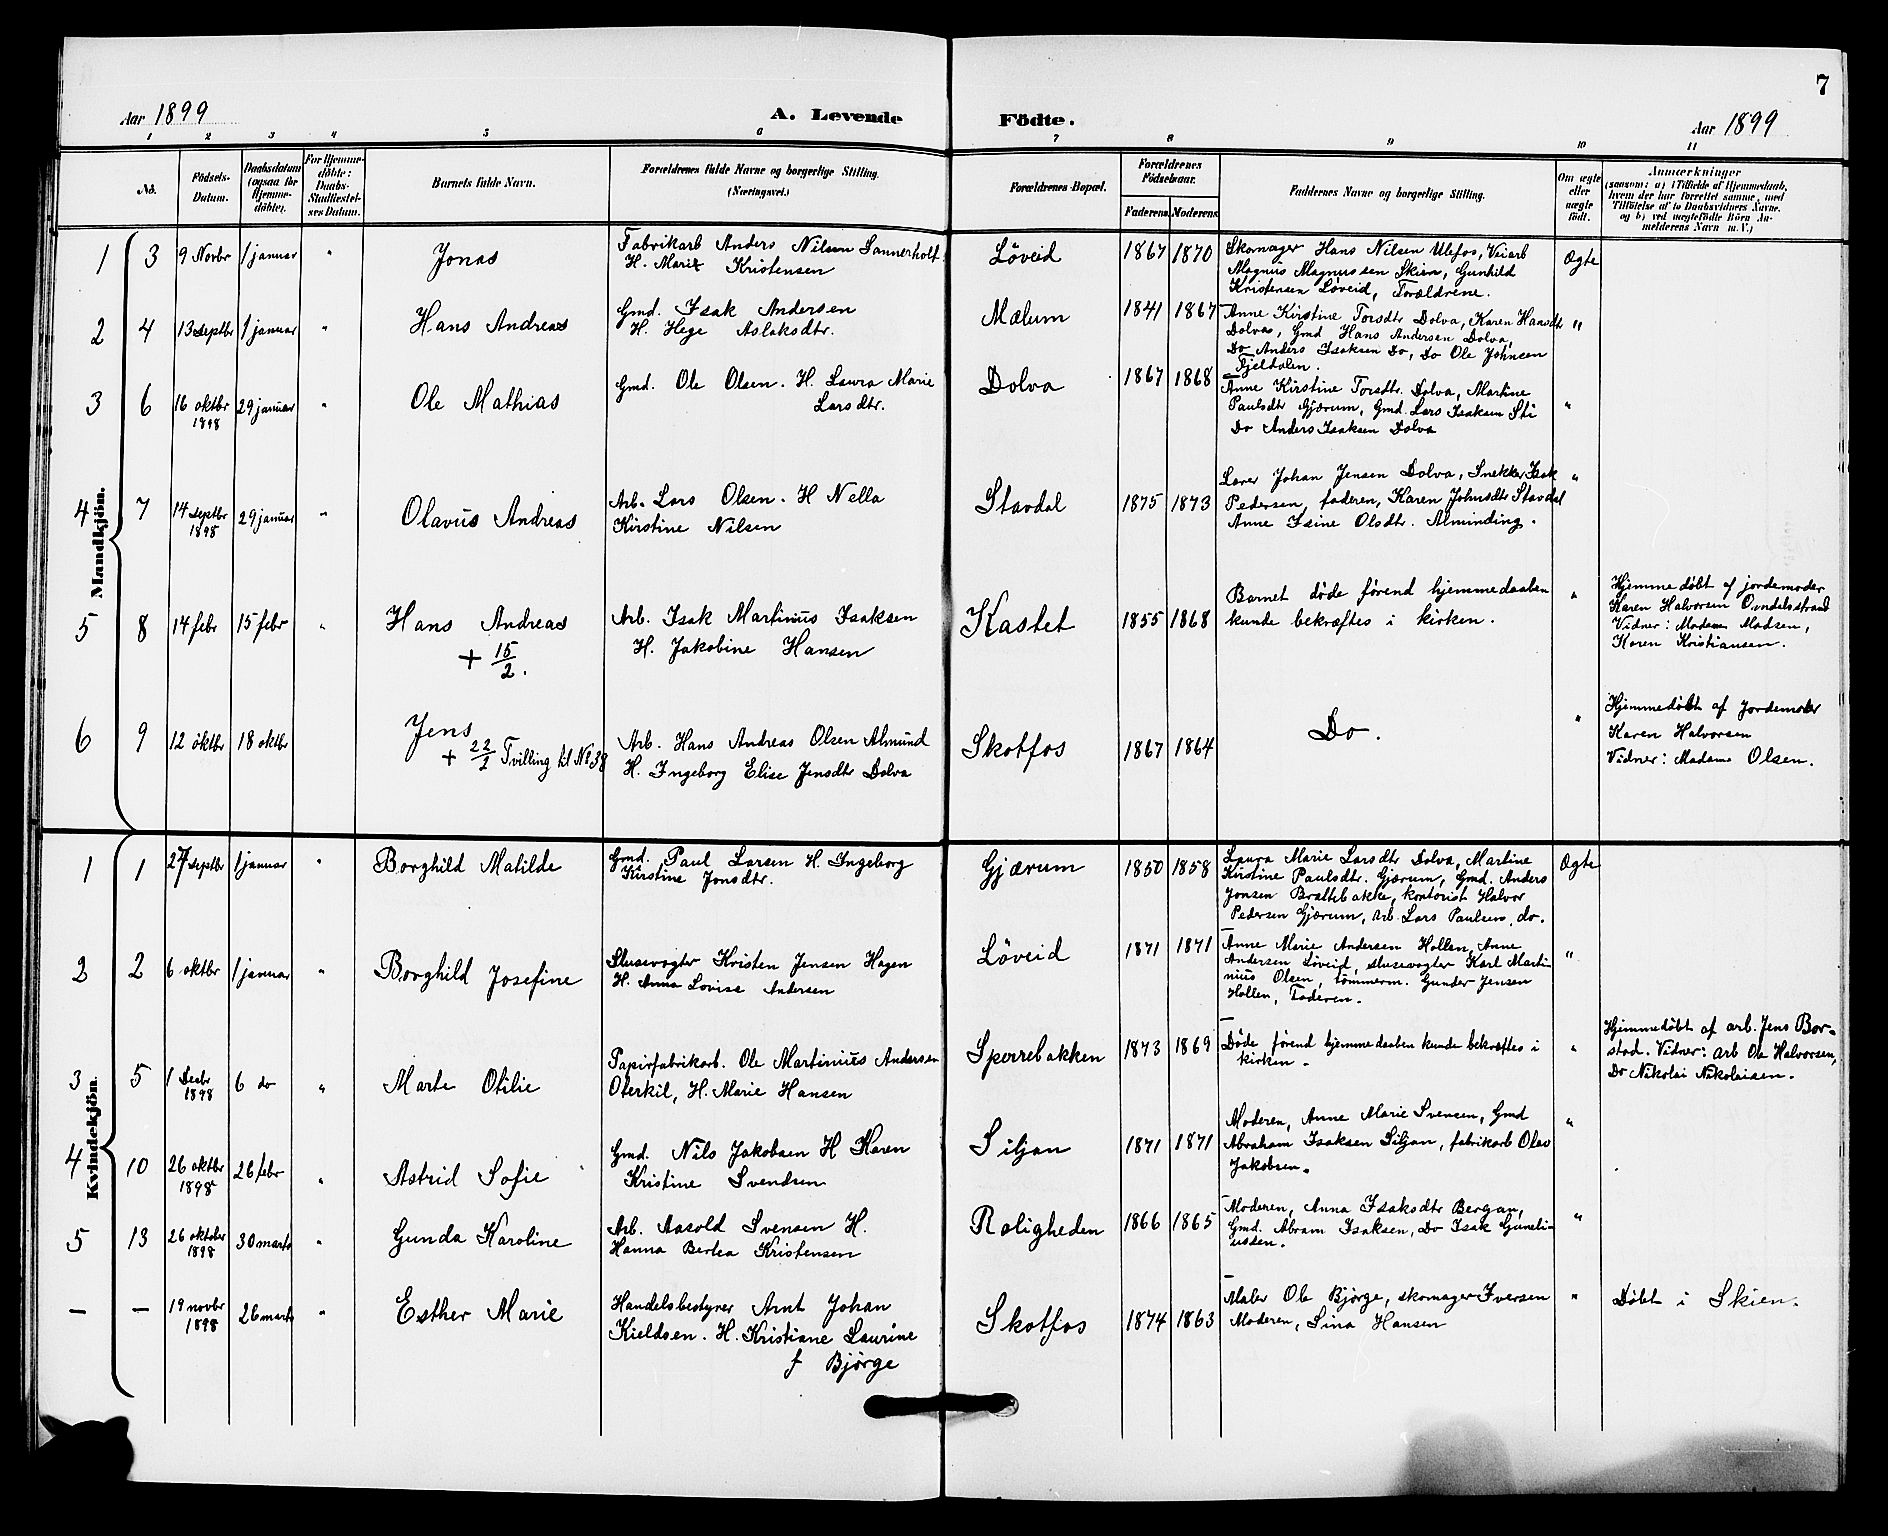 7
Aar 1899
A. Levende Födte.
Aar 1899
1 2 3 4 5 6 7 8 9 10 11
No.
Födsels-
Datum.
Daabsdatum
(ogsaa for
Hjemme-
döbte).
For Hjemme-
döbte:
Daabs-
Stadfæstel-
ses Datum.
Barnets fulde Navn.
Forældrenes fulde Navne og borgerlige Stilling.
(Næringsvei.)
Forældrenes Bopæl.
Forældrenes
Födselsaar.
Faderens
Moderens
Faddernes Navne og borgerlige Stilling.
Om ægte
eller
uægte
födt.
Anmærkninger
(saasom: a) i Tilfælde af Hjemmedaab,
hvem der har forrettet samme, med
Tilföielse af to Daabsvidners Navne,
og b) ved uægtefödte Börn An-
melderens Navn m. V.)
Mandkjön.
1 3 9 Novbr 1 januar " Jonas
Fabrikarb Anders Nilsen Sannerholt
H. Marie Kristensen
Løveid 1867 1870
Skomager Hans Nilsen Ulefos, Veiarb
Magnus Magnussen Skien, Gunhild
Kristensen Løveid, Forældrene.
Ægte
2 4 13 septbr 1 januar " Hans Andreas
Gmd. Isak Andersen
H. Hege Aslaksdtr.
Mælum 1841 1867
Anne Kirstine Torsdtr Dolva, Karen Hansdtr
Dolva, Gmd Hans Andersen Dolva,
Do Anders Isaksen Do, Do Ole Johnsen
Fjeldalen.
"
3 6 16 oktbr
1898
29 januar " Ole Mathias
Gmd. Ole Olsen. H. Laura Marie
Larsdtr.
Dolva 1867 1868
Anne Kirstine Torsdtr. Dolva, Martine
Paulsdtr Gjærum, Gmd. Lars Isaksen Sti
Do Anders Isaksen Dolva
"
4 7 14 septbr
1898
29 januar " Olavus Andreas
Arb. Lars Olsen. H Nella
Kirstine Nilsen
Stavdal 1875 1873
Larer Johan Jensen Dolva, Snekker Isak
Pedersen, faderen, Karen Johnsdtr Stavdal
Anne Isine Olsdtr. Alminding.
"
5 8 14 febr 15 febr " Hans Andreas
+ 15/2.
Arb. Isak Martinius Isaksen
H. Jakobine Hansen
Kastet 1855 1868
Barnet døde førend hjemmedaaben
kunde bekræftes i kirken.
"
Hjemmedøbt af jordemoder
Karen Halvorsen
Vidner: Madam Madsen,
Karen Kristiansen.
6 9 12 oktbr 18 oktbr Jens
+ 22/1 Tvilling til No 38
Arb. Hans Andreas Olsen Almund
H. Ingeborg Elise Jensdtr Dolva
Skotfos 1867 1864
Do.
"
Hjemmedøbt af Jordemoder
Karen Halvorsen
Vidner: Madame Olsen.
Kvindekjön.
1 1 27 septbr 1 januar " Borghild Matilde
Gmd. Paul Larsen H. Ingeborg
Kirstine Jonsdtr.
Gjærum 1850 1858
Laura Marie Larsdtr Dolva, Martine
Kirstine Paulsdtr. Gjærum, Gmd. Anders
Jonsen Bratlebakke, kontorist Halvor
Pedersen Gjærum, arb. Lars Paulsen, do.
Ægte
2 2 6 oktbr 1 januar " Borghild Josefine
Slusevogter Kristen Jensen Hagen
H. Anna Lovise Andersen
Løveid 1871 1871
Anne Marie Andersen Hollen, Anne
Andersen Løveid, slusevogter Karl Marti-
nius Olsen, tømmerm. Gunder Jensen
Hollen, Faderen.
"
3 5 1 Decbr
1898
6 do " Marte Otilie
Papirfabrikarb. Ole Martinius Andersen
Oterkil, H. Marie Hansen
Sperrebakken 1873 1869
Døde førend hjemmedaaben kunde bekræftes i
kirken.
"
Hjemmedøbt af arb. Jens Bor-
stad. Vidner: arb Ole Halvorsen,
Do Nikolai Nikolaisen.
4 10 26 oktbr
1898
26 febr " Astrid Sofie
Gmd. Nils Jakobsen H Karen
Kristine Svendsen
Siljan 1871 1871
Moderen, Anne Marie Svensen, Gmd
Abraham Isaksen Siljan, fabrikarb Olav
Jakobsen.
"
5 13 26 oktober
1898
30 marts " Gunda Karoline
Arb. Aasold Svensen H.
Hanna Bertea Kristensen
Roligheden 1866 1865
Moderen, Anna Isaksdtr Bergan,
Gmd. Abram Isaksen, Do Isak Guneli-
ussen.
"
– – 19 novbr
1898
26 marts " Esther Marie
Handelsbestyrer Arnt Johan
Kieldsen. H. Kristiane Laurine
f Bjørge
Skotfos 1874 1863
Maler Ole Bjørge, skomager Iversen
Moderen, Sina Hansen
"
Døbt i Skien.